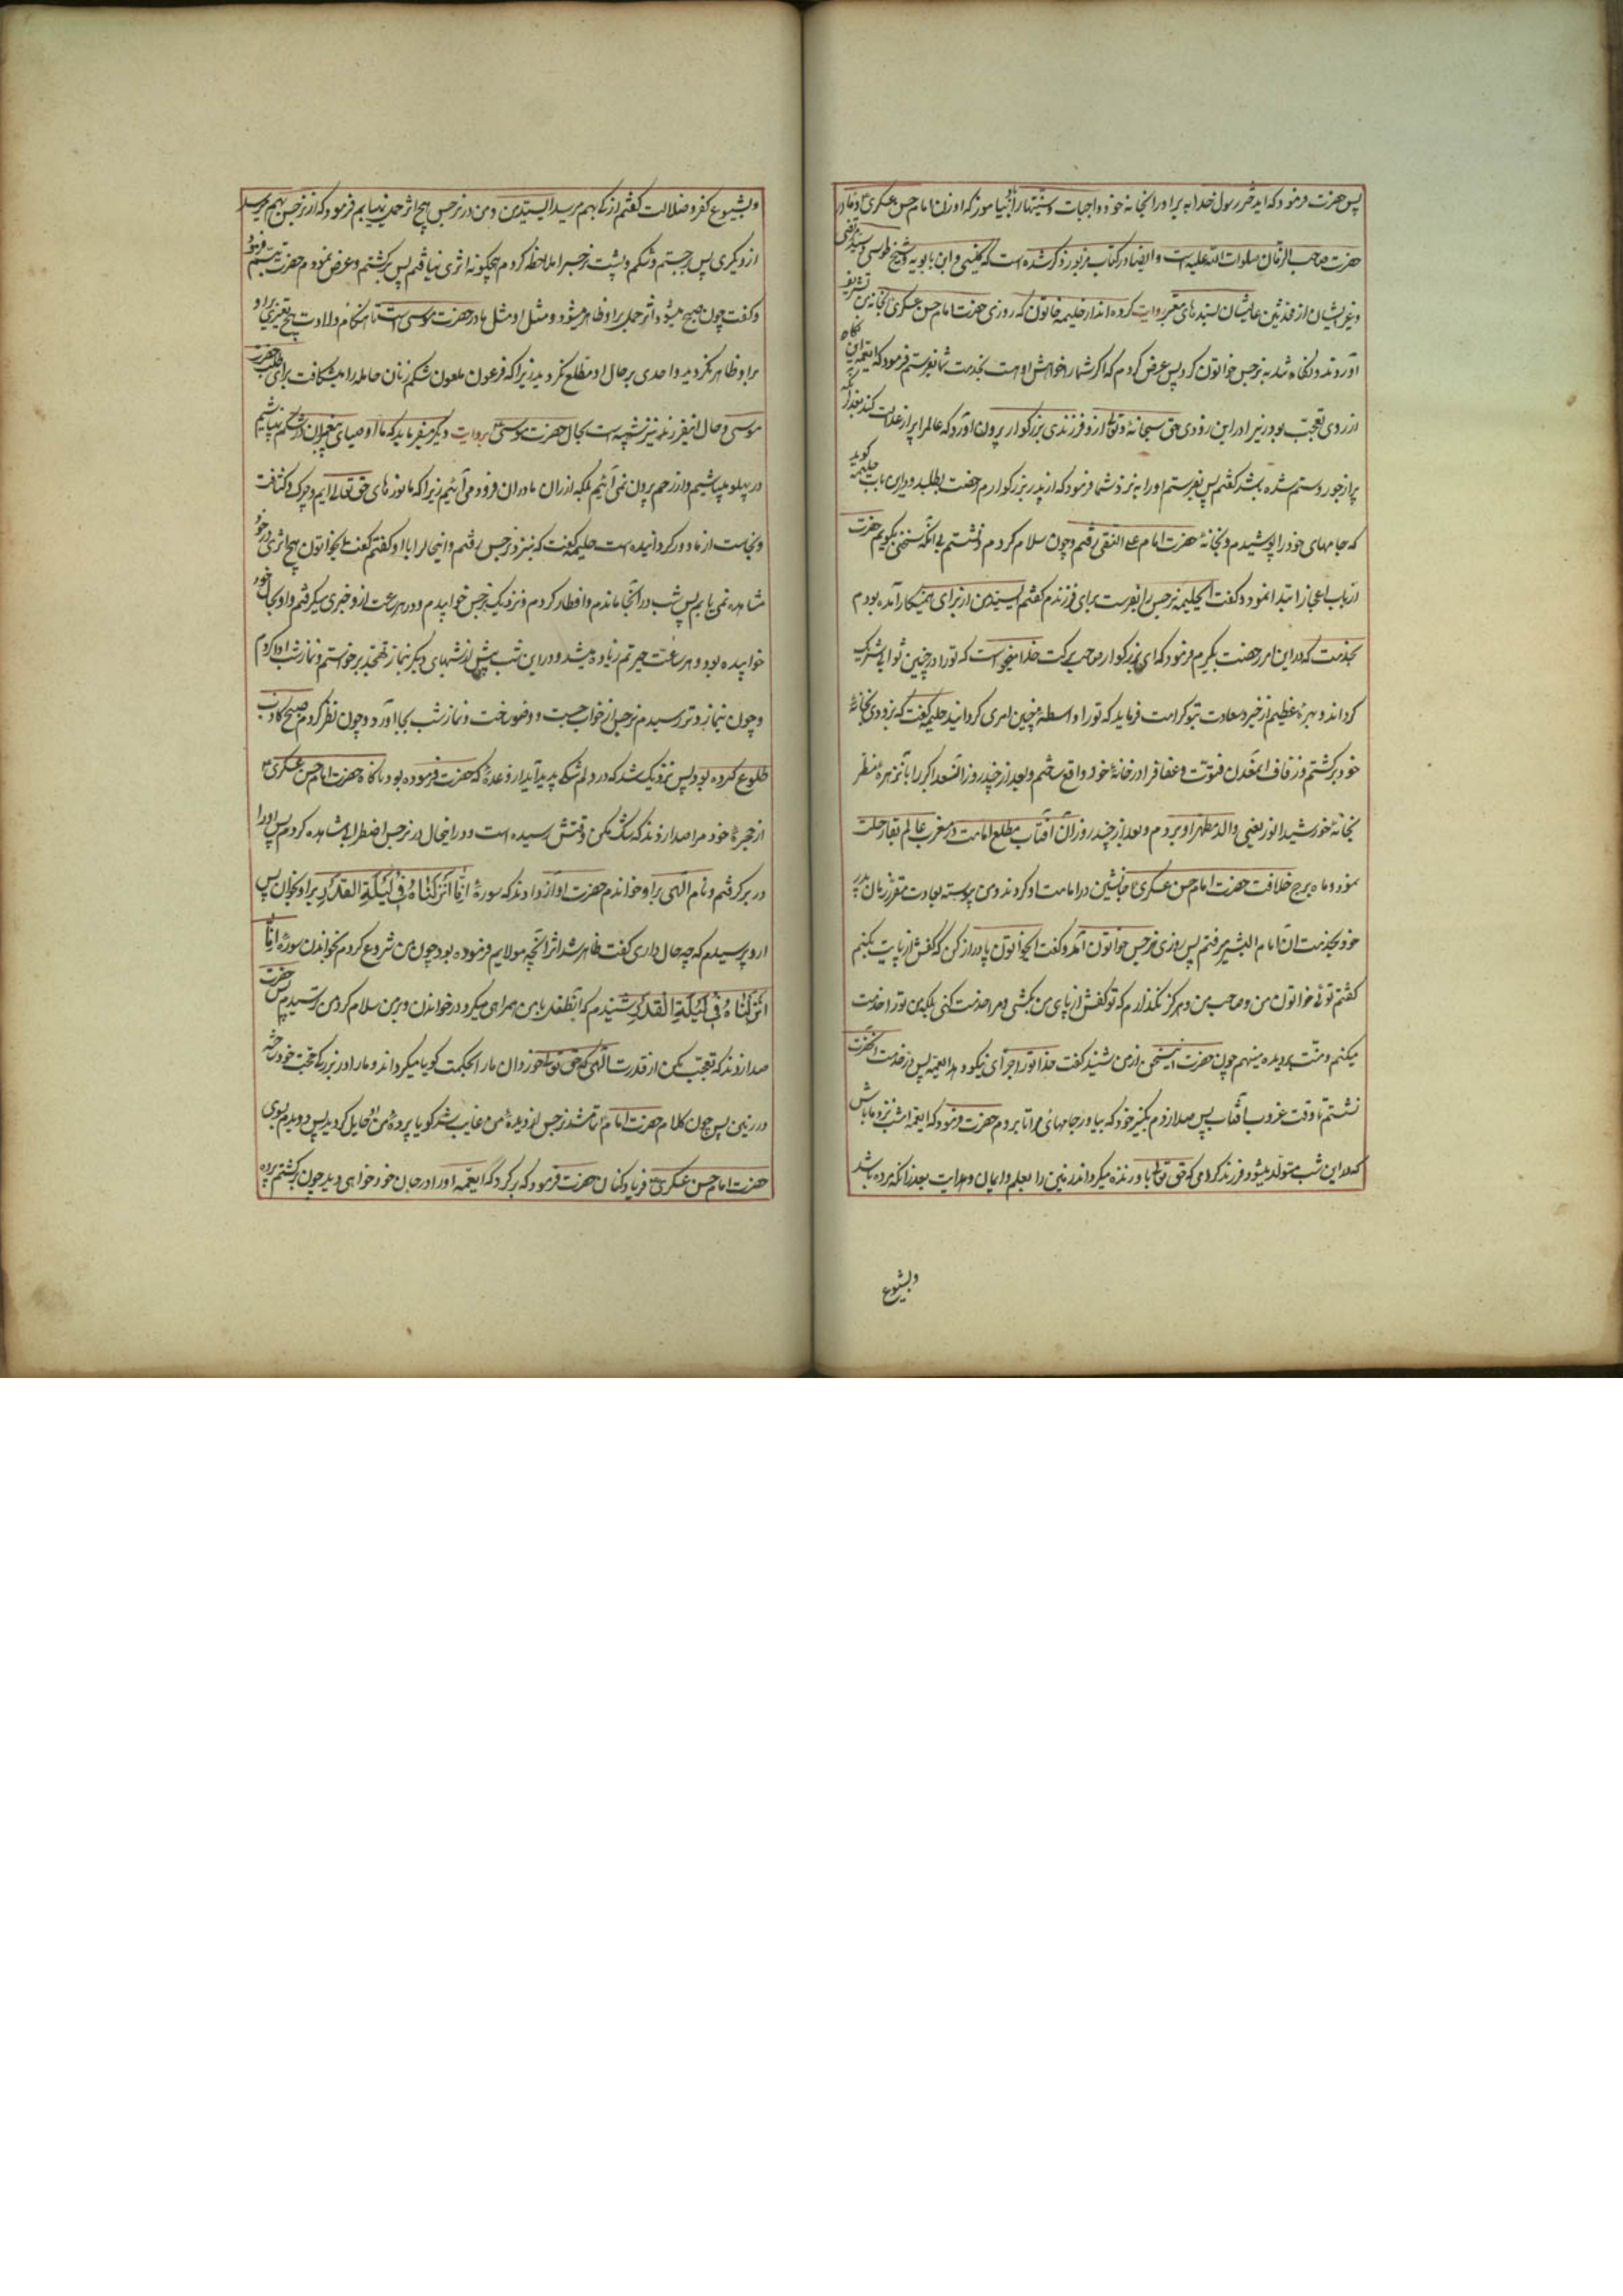 پس حضرت فرمود که ای دختر رسول خدا ببر او را بخانه خود و واجبات و سنتها را باو بیاموز که او زن امام حسن عسکری و مادر
حضرت صاحب الزمان صلوات الله علیه است و ایضا در کتاب مزبور ذکر شده است که کلینی و ابن بابویه و شیخ طوسی و سید مرتضی
و غیر ایشان از محدثین عالیشان بسندهای معتبر روایت کرده اند از حلیمه خاتون که روزی حضرت امام حسن عسکری بخانه من تشریف
آوردند و نگاه تند به نرجس خواتون کرد پس عرض کردم که اگر شما را خواهش او هست بخدمت شما بفرستم فرمود که ایعمه این نگاه
از روی تعجب بود زیرا در این زودی حق سبحانه و تعالی از او فرزندی بزرگوار بیرون آورد که عالم را پر از عدالت کند بعد از آنکه
پر از جور و ستم شده باشد گفتم پس بفرستم او را به نزد شما فرمود که از پدر بزرگوارم رخصت بطلبید در این باب حلیمه گوید
که جامهای خود را پوشیدم و بخانه حضرت امام علی النقی رفتم و چون سلام کردم و نشستم بی آنکه سخنی بگویم حضرت
از باب اعجاز ابتدا نمود و گفت ایحلیمه نرجس را بفرست برای فرزندم گفتم ای سید من از برای همین کار آمده بودم
بخدمت که در این امر رخصت بگیرم فرمود که ای بزرگوار صاحب برکت خدا میخواست که تو را در چنین ثوابی شریک
گرداند و بهره عظیم از خیر و سعادت بتو کرامت فرماید که تو را واسطه چنین امری گردانید حلیمه گفت که بزودی بخانه
خود برگشتم و زفاف آن معدن فتوت و عفاف را در خانه خود واقع ساختم و بعد از چند روز آن سعد اکبر را با آن زهره منظر
بخانه خورشید انور یعنی والد مطهر او بردم و بعد از چند روز آن آفتاب مطلع امامت در مغرب عالم بقا رحلت
نمود و ماه برج خلافت حضرت امام حسن عسکری جانشین در امامت او کردند و من پیوسته بعادت مقرر زمان پدر
خود بخدمت آن امام البشر میرفتم پس روزی نرجس خواتون آمد و گفت ایخواتون پا دراز کن که کفش از پایت بکنم
گفتم توئی خواتون من و صاحب من و هرگز نگذارم که تو کفش از پای من بکشی و مرا خدمت کنی بلکه من تو را خدمت
میکنم و منت بر دیده مینهم چون حضرت این سخن از من شنید گفت خدا تو را جزای نیکو دهد ایعمه پس در خدمت آنحضرت
نشستم تا وقت غروب آفتاب پس صدا زدم بکنیز خود که بیاور جامهای مرا تا بروم حضرت فرمود که ایعمه امشب نزد ما باش
که در این شب متولد میشود فرزند گرامی که حق تعالی باو زنده میگرداند زمین را بعلم و ایمان و هدایت بعد از آنکه مرده باشد
و بشیوع
و بشیوع کفر و ضلالت گفتم از که بهم میرسد ای سید من و من در نرجس هیچ اثر حمل نمییابم فرمود که از نرجس بهم میرسد
از دیگری پس برجستم و شکم و پشت نرجس را ملاحظه کردم هیچگونه اثری نیافتم پس برگشتم و عرض نمودم حضرت تبسم فرمود
و گفت چون صبح میشود اثر حمل بر او ظاهر میشود و مثل او مثل مادر حضرت موسی است تا هنگام ولادت هیچ تغییری او
بر او ظاهر نگردید و احدی بر حال او مطلع نگردید زیرا که فرعون ملعون شکم زنان حامله را میشکافت برای طلب حضرت
موسی و حال اینفرزند نیز شبیه است بحال حضرت موسی بروایت دیگر میفرماید که ما اوصیای پیغمبران در شکم نمیباشیم
در پهلو میباشیم و از رحم بیرون نمی آئیم بلکه از ران مادران فرود می آئیم زیرا که ما نورهای حق تعالی ایم و چرک و کثافت
و نجاست از ما دور گردانیده است حلیمه گفت که بنزد نرجس رفتم و اینحال را با او گفتم گفت ایخواتون هیچ اثری در خود
مشاهده نمی یابم پس شب در آنجا ماندم و افطار کردم و نزدیک نرجس خوابیدم و در هر ساعت از او خبری میگرفتم و او بحال خود
خوابیده بود و هر ساعت حیرتم زیاده میشد و در این شب بیش از شبهای دیگر بنماز تهجد برخواستم و نماز شب ادا کردم
و چون بنماز وتر رسیدم نرجس از خواب جست و وضو ساخت و نماز شب بجا آورد و چون نظر کردم صبح کاذب
طلوع کرده بود پس نزدیک شد که در دلم شکی پدید آید از وعده که حضرت فرموده بود ناگاه حضرت امام حسن عسکری
از حجره خود مرا صدا زدند که شک مکن وقتش رسیده است و در اینحال در نرجس اضطراب مشاهده کردم پس او را
در بر گرفتم و نام الهی بر او خواندم حضرت آواز دادند که سوره انا انزلناه فی لیلة القدر بر او بخوان پس
از او پرسیدم که چه حال داری گفت ظاهر شد اثر آنچه مولایم فرموده بود چون من شروع کردم بخواندن سوره انا
انزلناه فی لیلة القدر شنیدم که آنطفل با من همراهی میکرد در خواندن و بر من سلام کرد من ترسیدم پس حضرت
صدا زدند که تعجب مکن از قدرت الهی که حق تعالی خوردان ما را بحکمت گویا میگرداند و ما را در بزرگی حجت خود ساخته
در زمین پس چون کلام حضرت امام تمام شد نرجس از دیده من غایب شد گویا پرده من او حایل گردید پس دویدم بسوی
حضرت امام حسن عسکری فریاد کنان حضرت فرمود که برگرد که ایعمه او را در جای خود خواهی دید چون برگشتم پرده